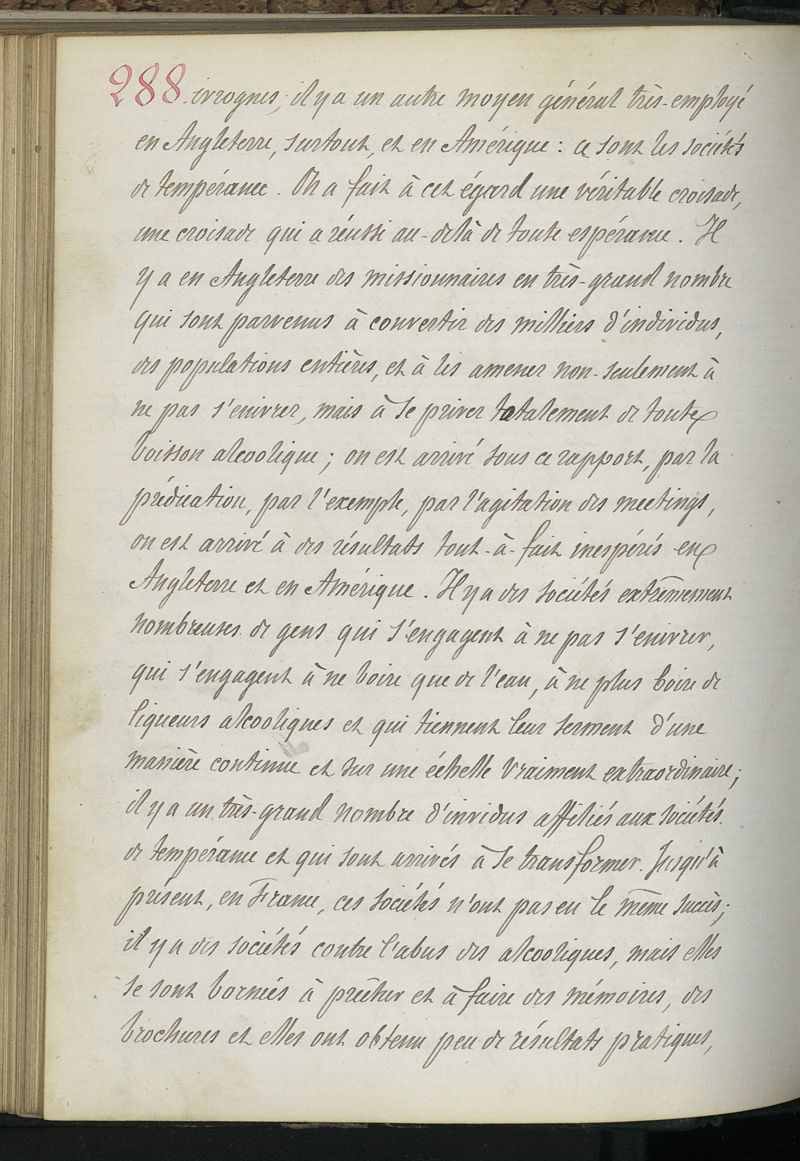 288
ivrognes, il y a un autre moyen général très-employé
en Angleterre, surtout, et en Amérique : ce sont les sociétés
de tempérance. On a fait à cet égard une véritable croisade,
une croisade qui a réussi au-delà de toute espérance. Il
y a en Angleterre des missionnaires en très-grand nombre
qui sont parvenus à convertir des milliers d'individus,
des populations entières, et à les amener non-seulement à
ne pas s'enivrer, mais à se priver totalement de toute
boisson alcoolique ; on est arrivé sous ce rapport, par la
prédication, par l'exemple, par l'agitation des meetings,
on est arrivé à des résultats tout-à-fait inespérés en
Angleterre et en Amérique. Il y a des sociétés extrêmement
nombreuses de gens qui s'engagent à ne pas s'enivrer,
qui s'engagent à ne boire que de l'eau, à ne plus boire de
liqueurs alcooliques et qui tiennent leur serment d'une
manière continue et sur une échelle vraiment extraordinaire ;
il y a un très-grand nombre d'invidus affiliés aux sociétés
de tempérance et qui sont arrivés à se transformer. Jusqu'à
présent, en France, ces sociétés n'ont pas eu le même succès ;
il y a des sociétés contre l'abus des alcooliques, mais elles
se sont bornées à prêcher et à faire des mémoires, des
brochures et elles ont obtenu peu de résultats pratiques,